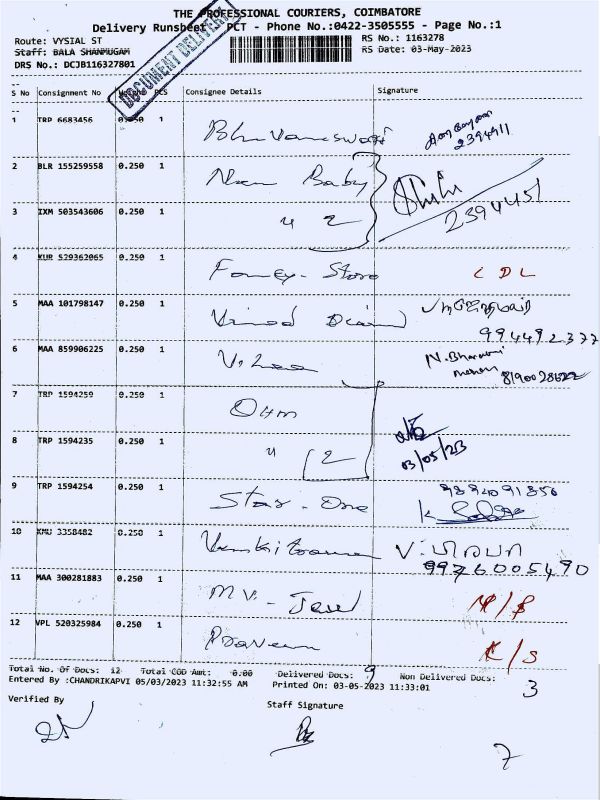 THE PROFESSIONAL COURIERS, COIMBATORE
Delivery Runsheet PCT - Phone No.:0422-3505555 - Page No.:1
DOCUMENT DELIVERY
Route: VYSIAL ST
RS No.: 1163278
Staff: BALA SHANMUGAM
RS Date: 03-May-2023
DRS No.: DCJB116327801
S No Consignment No Weight PCS Consignee Details Signature
1 TRP 6683456 1 Bhuvaneswari
2394911
2 BLR 155259558 0.250 1 Baby
3 IXM 503543606 0.250 1 " 2 2394451
4 KUR 529362065 0.250 1 Fancy - Store L D L
5 MAA 101798147 0.250 1 Vinod
994492377
6 MAA 859906225 0.250 1 N. 8190028622
7 TRP 1594259 0.250 1 Ohm
8 TRP 1594235 0.250 1 " 2 03/05/23
9 TRP 1594254 0.250 1 Star - One
10 KMU 3358482 0.250 1 V.
9976005490
11 MAA 300281883 0.250 1 M.V. - Jewel N/B
12 VPL 520325984 0.250 1 Praveen K/S
Total No. Of Docs: 12 Total COD Amt: 0.00 Delivered Docs: 9 Non Delivered Docs: 3
Entered By :CHANDRIKAPVI 05/03/2023 11:32:55 AM Printed On: 03-05-2023 11:33:01
Verified By Staff Signature
7